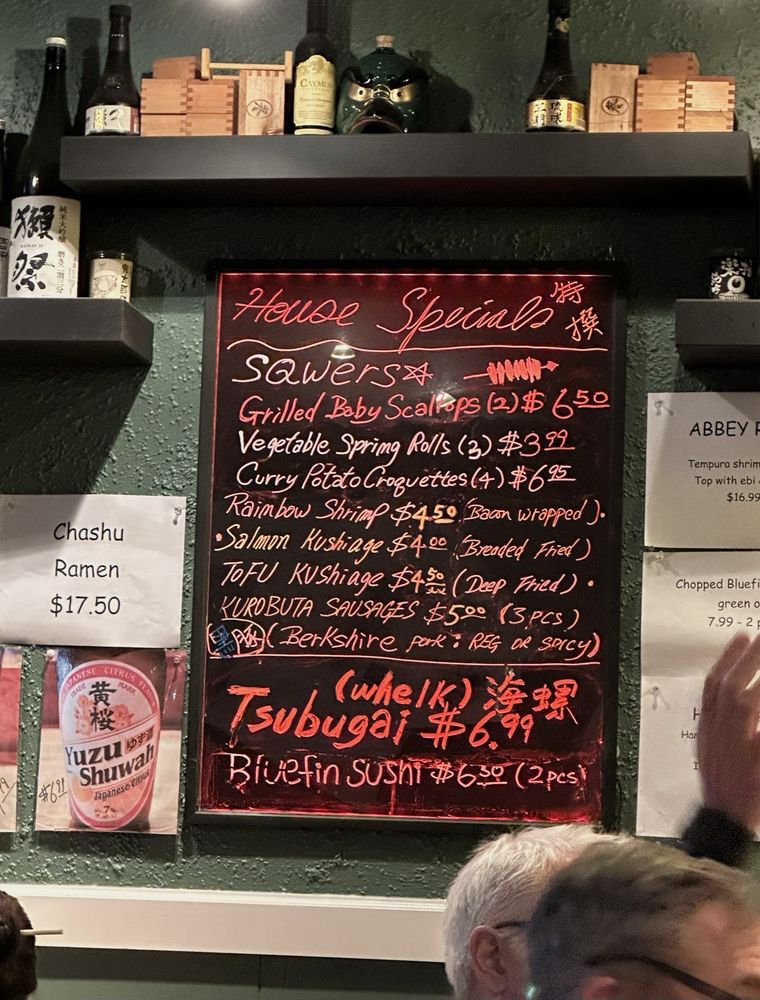 CAYMUS
琉球
獺祭
純米大吟醸 磨き二割三分
House Specials 特撰
SQWers
Grilled Baby Scallops (2) $6 50
Vegetable Spring Rolls (3) $3 99
Curry Potato Croquettes (4) $6 95
Rainbow Shrimp $4 50 (Bacon wrapped).
• Salmon Kushiage $4 00 (Breaded Fried)
TOFU KUShiage $4 50 (Deep Fried) •
KUROBUTA SAUSAGES $5 00 (3 pcs)
(Berkshire pork: REG OR spicy)
(whelk) 海螺
Tsubugai $6.99
Bluefin Sushi $6 50 (2pcs)
Chashu
Ramen
$17.50
JAPANESE CITRUS
TRADE MARK
黄桜
Yuzu ゆず
Shuwah
Japanese Citrus
7%
$6 99
ABBEY
Tempura shrim
Top with ebi
$16.99
Chopped Bluefi
green o
7.99 - 2 p